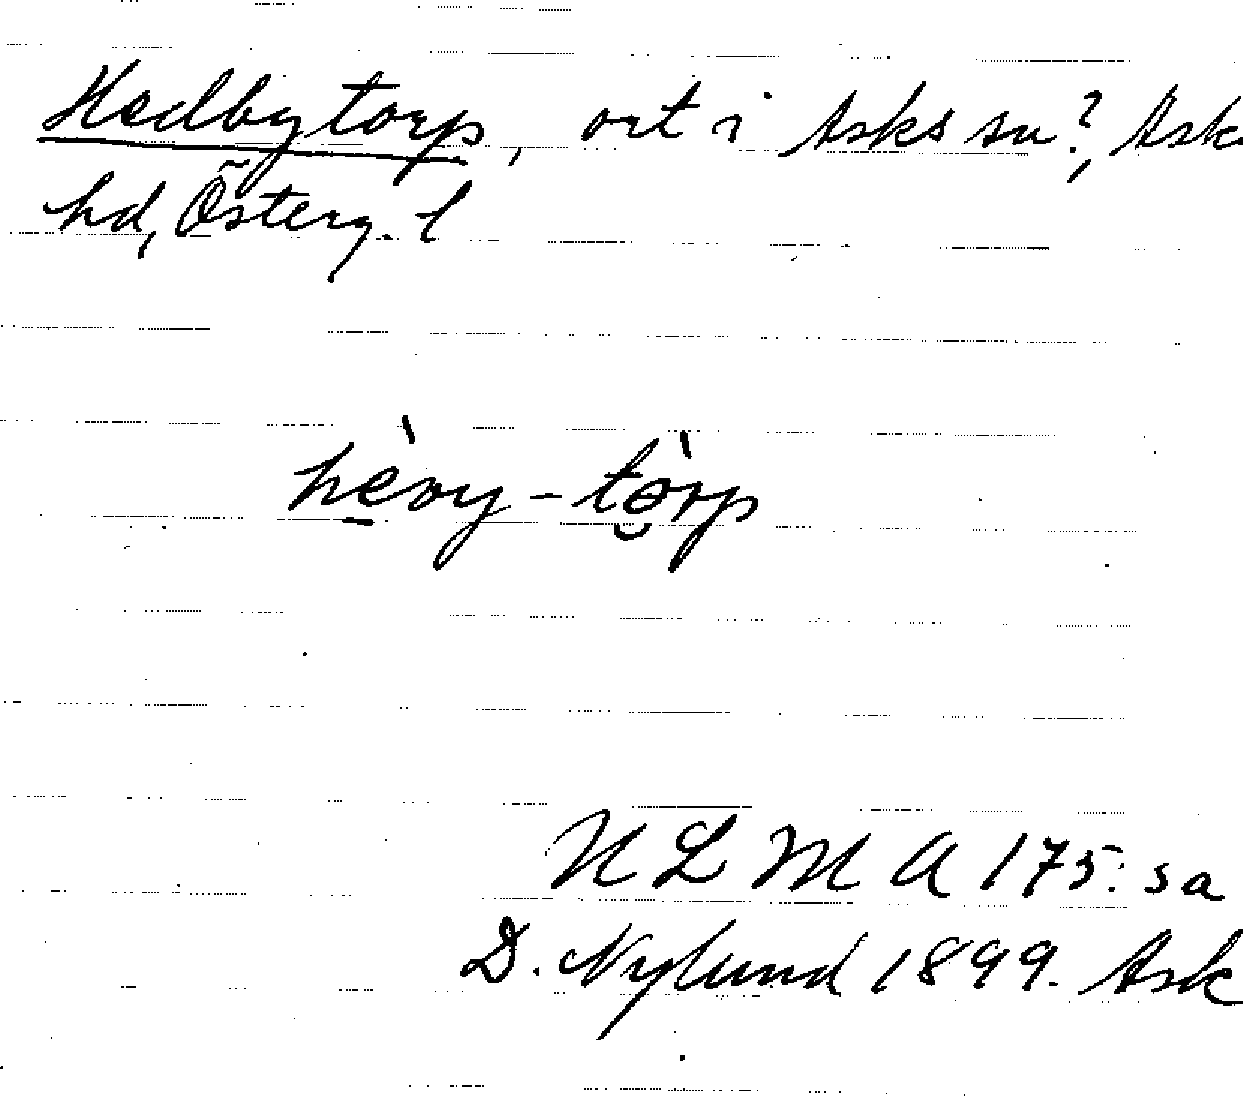 Hedbytorp, ort i Asks sn?, Ask
hd, Österg. l
hèvy-tòrp
ULMA 175: sa
D. Nylund 1899. Ask